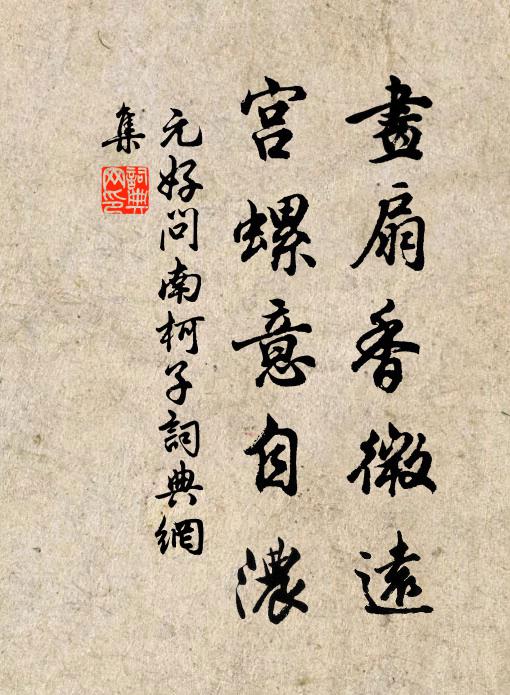 畫扇香微遠
宮螺意自濃
元好問南柯子詞典網
集
詞典网印